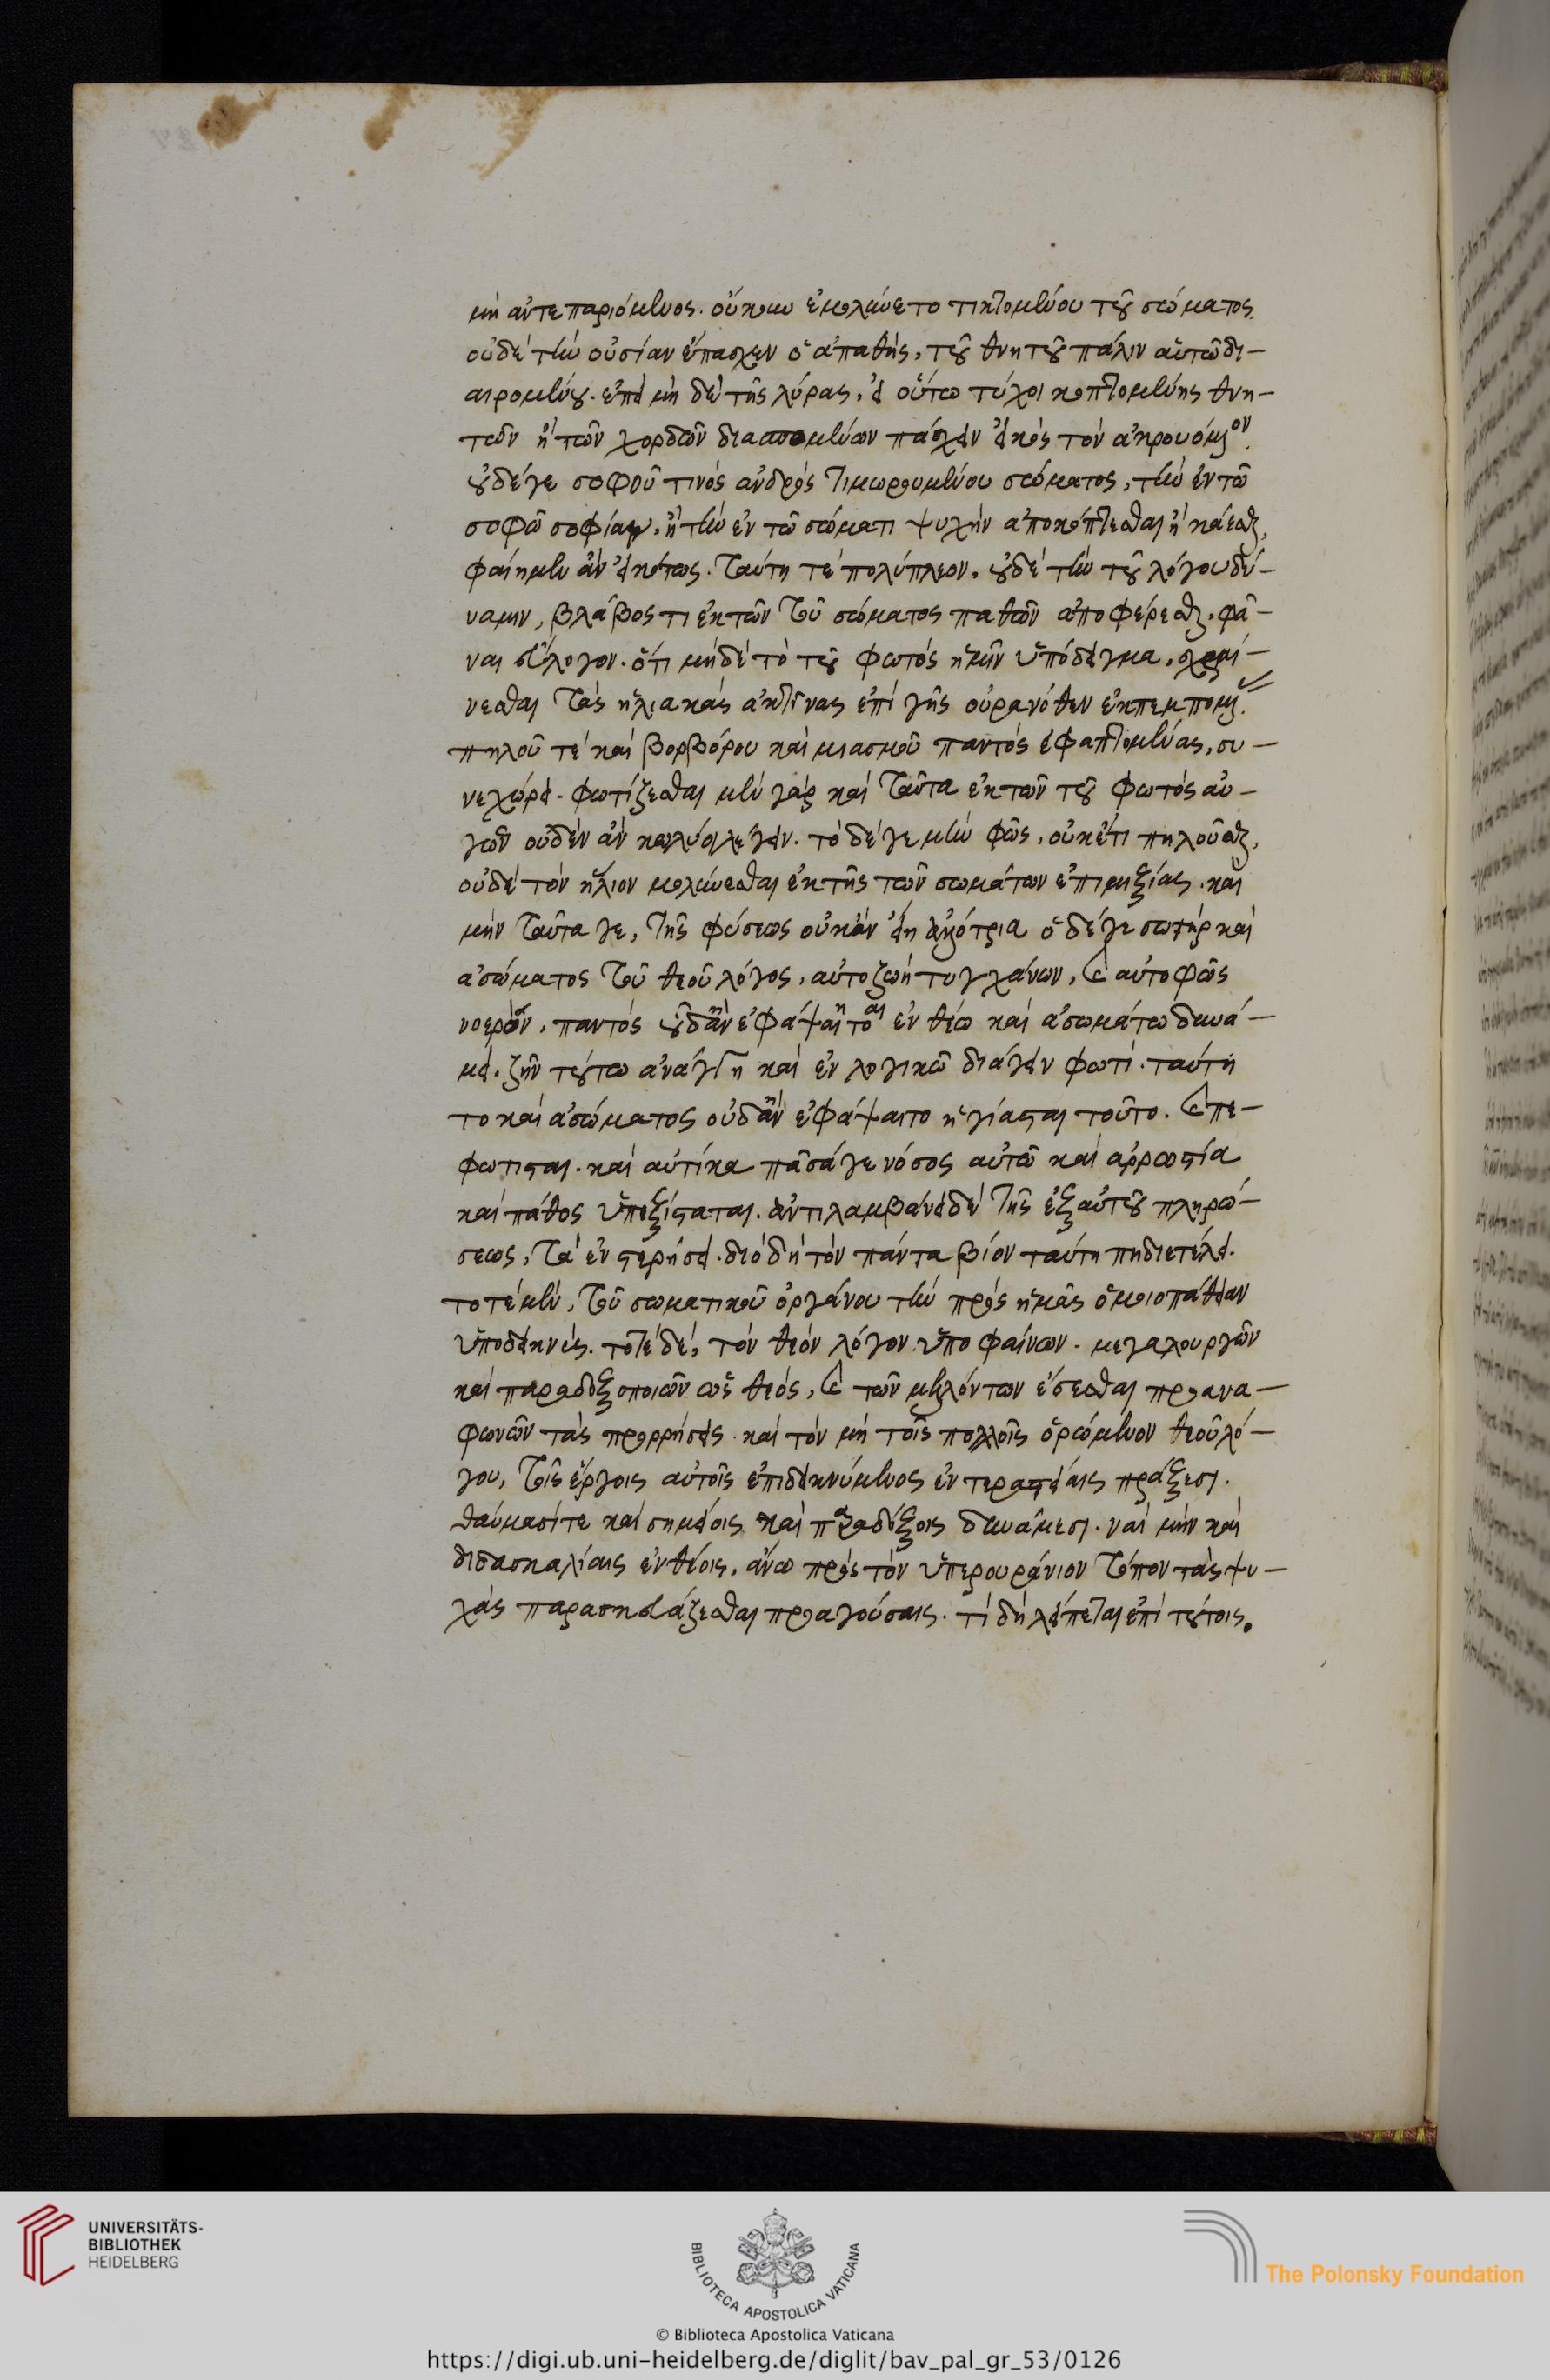 μὴ ἀντεπαγόμενος. οὔκουν ἐμολύνετο τικτομένου τοῦ σώματος.
οὐδὲ τὴν οὐσίαν ἔπασχεν ὁ ἀπαθής, τοῦ θνητοῦ πάλιν αὐτῶ δι-
αιρουμένου. ἐπεὶ μὴ δὲ τῆς λύρας, εἰ οὕτω τύχοι κοπτομένης θνη-
τῶν ἢ τῶν χορδῶν διασπωμένων πάσχειν εἰκὸς τὸν ἀκρουόμενον.
οὐδέγε σοφοῦ τινὸς ἀνδρὸς τιμωρουμένου σώματος, τὴν ἐν τῶ
σοφῶ σοφίαν, ἢ τὴν ἐν τῶ σώματι ψυχὴν ἀποκόπτεσθαι ἢ κάεσθαι,
φαίημεν ἂν εἰκότως. ταύτη τὲ πολὺ πλέον, οὐδὲ τὴν τοῦ λόγου δύ-
ναμιν, βλάβος τι ἐκ τῶν τοῦ σώματος παθῶν ἀποφέρεσθαι, φᾶ-
ναι εὔλογον. ὅτι μὴ δὲ τὸ τοῦ φωτὸς ἡμῖν ὑπόδειγμα, χραί-
νεσθαι τὰς ἡλιακὰς ἀκτῖνας ἐπὶ γῆς οὐρανόθεν ἐκπεμπομένας.
πηλοῦ τὲ καὶ βορβόρου καὶ μιασμοῦ παντὸς ἐφαπτομένας, συ-
νεχώρει. φωτίζεσθαι μὲν γὰρ καὶ ταῦτα ἐκ τῶν τοῦ φωτὸς αὐ-
γῶν οὐδὲν ἂν κωλύοι λέγειν. τὸ δέγε μὴν φῶς, οὐκέτι πηλοῦσθαι,
οὐδὲ τὸν ἥλιον μολύνεσθαι ἐκ τῆς τῶν σωμάτων ἐπιμιξίας. καὶ
μὴν ταῦτα γε, τῆς φύσεως οὐκ ἂν εἴη ἀλλότρια ὁ δέγε σωτὴρ καὶ
ἀσώματος τοῦ θεοῦ λόγος, αὐτοζωὴ τυγχάνων, καὶ αὐτοφῶς
νοερὸν, παντὸς οὗ δ᾽ ἂν ἐφάψαιτο ἐν θείω καὶ ἀσωμάτω δυνά-
μει. ζῆν τούτω ἀνάγκη καὶ ἐν λογικῶ διάγειν φωτί. ταύτη
το καὶ ἀσώματος οὐδ᾽ ἂν ἐφάψαιτο ἡγίασται τοῦτο. καὶ πε-
φώτισται. καὶ αὐτίκα πᾶσά γε νόσος αὐτῶ καὶ ἀρρωστία
καὶ πάθος ὑπεξίσταται. ἀντιλαμβάνει δὲ τῆς ἐξ αὐτοῦ πληρώ-
σεως, τὰ ἐν στερήσει. διὸ δὴ τὸν πάντα βίον ταύτη πη διετέλει.
τοτὲ μὲν, τοῦ σωματικοῦ ὀργάνου τὴν πρὸς ἡμᾶς ὁμοιοπάθειαν
ὑποδεικνύς. τοτὲ δὲ, τὸν θεὸν λόγον ὑποφαίνων. μεγαλουργῶν
καὶ παραδοξοποιῶν ὡς θεός, καὶ τῶν μελλόντων ἔσεσθαι προανα-
φωνῶν τὰς προρρήσεις. καὶ τὸν μὴ τοῖς πολλοῖς ὁρώμενον θεοῦ λό-
γου, τοῖς ἔργοις αὐτοῖς ἐπιδεικνύμενος ἐν τεραστείαις πράξεσι.
θαύμασί τε καὶ σημείοις καὶ παραδόξοις δυνάμεσι. ναὶ μὴν καὶ
διδασκαλίαις ἐνθέοις, ἄνω πρὸς τὸν ὑπερουράνιον τόπον τὰς ψυ-
χὰς παρασκευάζεσθαι προαγούσαις. τί δὴ λείπεται ἐπὶ τούτοις.
UNIVERSITÄTS-
BIBLIOTHEK
HEIDELBERG
BIBLIOTECA APOSTOLICA VATICANA
The Polonsky Foundation
© Biblioteca Apostolica Vaticana
https://digi.ub.uni-heidelberg.de/diglit/bav_pal_gr_53/0126